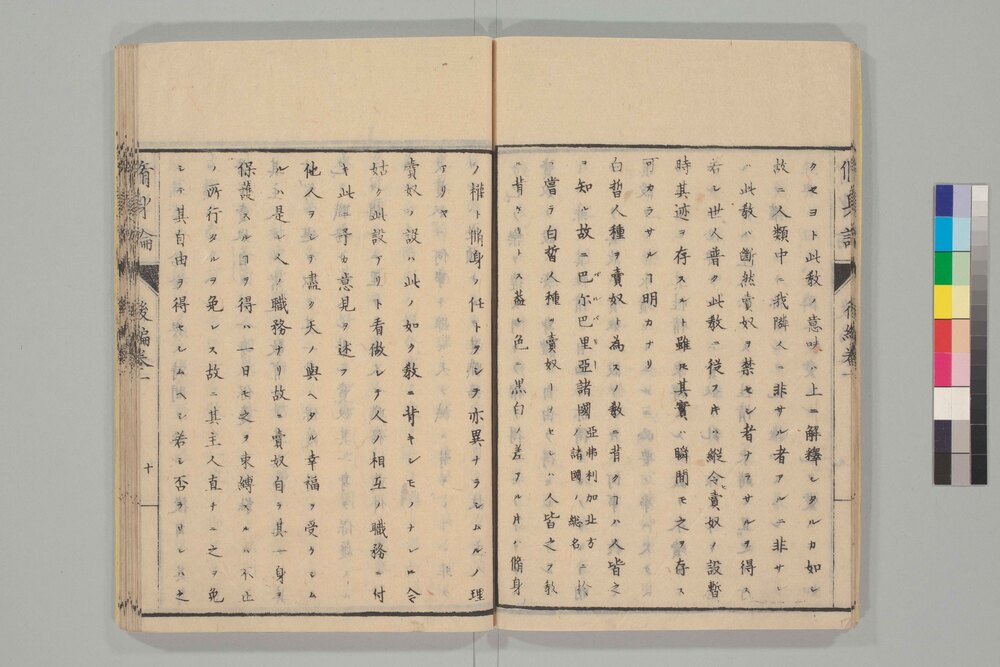 クセヨト此教ノ意味ハ上ニ解釋シタルカ如シ
故ニ人類中ニ我隣人ニ非サル者アルニ非サレ
ハ此教ハ斷然賣奴ヲ禁セシ者ナラサルヲ得ス
若シ世人普ク此教ニ從フ片ハ縱令賣奴ノ設暫
時其迹ヲ存スルト雖𪜈其實ハ瞬間モ之ヲ存ス
可カラサルヿ明カナリ
白晢人種ヲ賣奴ト為スノ教ニ背クヿハ人皆之
ヲ知ル故ニ巴尔巴里亞諸國
亞弗利加北方
諸國ノ總名
ニ於
嘗ラ白晢人種ヲ賣奴
人皆之ヲ教
ニ背
トス蓋シ色ニ黒白ノ差アル片ハ脩身
ノ權ト脩身ノ任トヲシテ亦異ナラシムルノ理
アリヤ
賣奴ノ設ハ此ノ如ク教ニ背キシモノナレ𪜈今
姑ク此設アリト看做シテ人ノ相互ノ職務ニ付
キ此ニ予カ意見ヲ述フ
他人ヲシテ盡ク天ノ與ヘタル幸福ヲ受クシム
ルハ是レ人ノ職務ナリ故ニ賣奴自ラ其一身ヲ
保護スルヿヲ得ハ一日モ之ヲ束縛スルハ不正
ノ所行タルヲ免レス故ニ其主人直チニ之ヲ免
シテ其自由ヲ得セシムヘシ若シ否ラサレハ之
脩身論
後編卷一
十